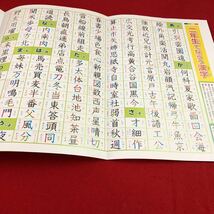 二年生でならう漢字
引羽雲園遠か何科夏家歌画回会海
絵外角楽活間丸岩顔汽記帰弓牛魚京
強教近兄形計元言原戸古午後語工公
広交光考行高黄合谷国黒今さ才細作
算止市矢姉思紙寺自時室社弱首秋週
春書少場色食心新親図数西声星晴切
雪船線前組走た多太体台地池知茶昼
長鳥朝直通弟店点電刀冬当東答頭同
内南肉は馬売買麦半番父風分
毎妹万明鳴毛門